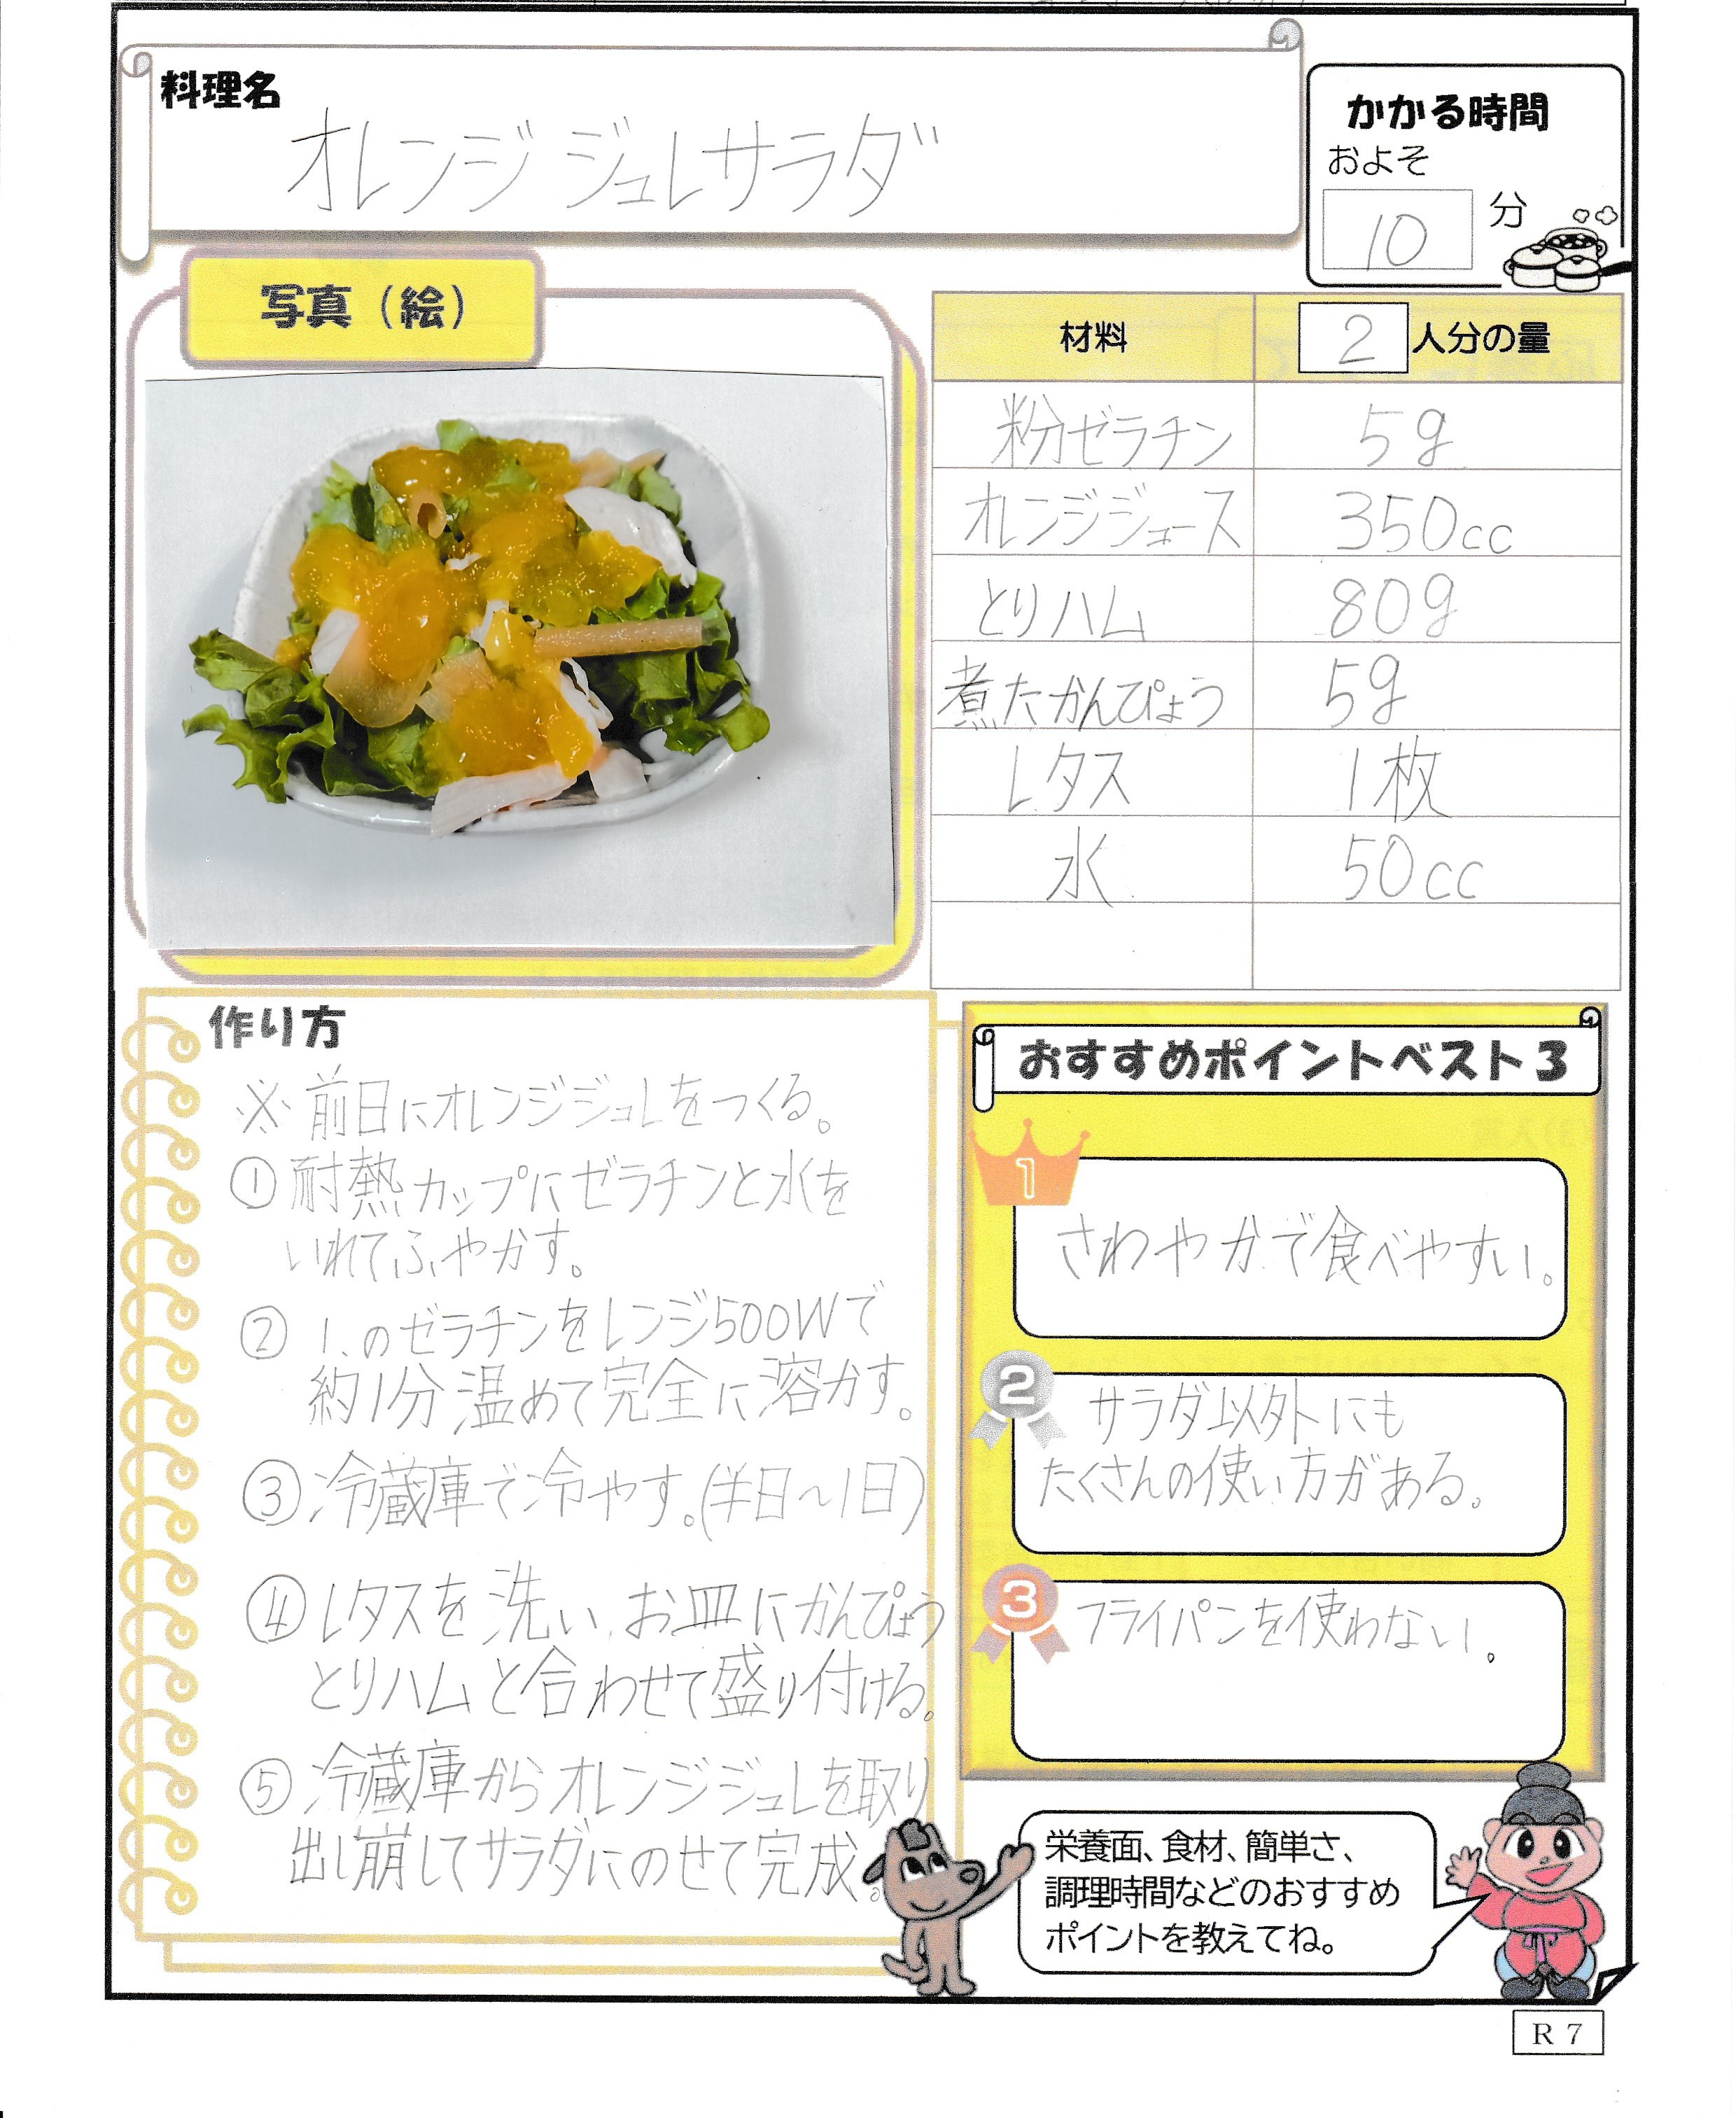 料理名
オレンジジュレサラダ
かかる時間
およそ
10分
写真（絵）
材料 2人分の量
粉ゼラチン 5g
オレンジジュース 350cc
とりハム 80g
煮たかんぴょう 5g
レタス 1枚
水 50cc
作り方
※前日にオレンジジュレをつくる。
①耐熱カップにゼラチンと水を
いれてふやかす。
② 1.のゼラチンをレンジ500Wで
約1分温めて完全に溶かす。
③冷蔵庫で冷やす。(半日～1日)
④レタスを洗い、お皿にかんぴょう
とりハムと合わせて盛り付ける。
⑤冷蔵庫からオレンジジュレを取り
出し崩してサラダにのせて完成。
おすすめポイントベスト3
1
さわやかで食べやすい。
2
サラダ以外にも
たくさんの使い方がある。
3
フライパンを使わない。
栄養面、食材、簡単さ、
調理時間などのおすすめ
ポイントを教えてね。
R7